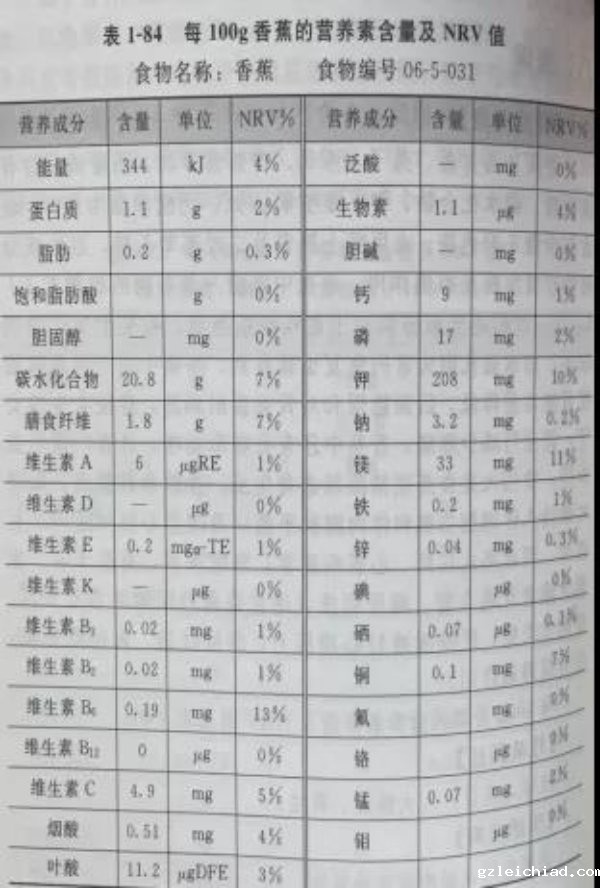 表 1-84 每 100g 香蕉的营养素含量及 NRV 值
食物名称：香蕉 食物编号 06-5-031
营养成分 含量 单位 NRV% 营养成分 含量 单位 NRV%
能量 344 kJ 4% 泛酸 — mg 0%
蛋白质 1.1 g 2% 生物素 1.1 μg 4%
脂肪 0.2 g 0.3% 胆碱 — mg 0%
饱和脂肪酸 g 0% 钙 9 mg 1%
胆固醇 — mg 0% 磷 17 mg 2%
碳水化合物 20.8 g 7% 钾 208 mg 10%
膳食纤维 1.8 g 7% 钠 3.2 mg 0.2%
维生素 A 6 μgRE 1% 镁 33 mg 11%
维生素 D — μg 0% 铁 0.2 mg 1%
维生素 E 0.2 mgα-TE 1% 锌 0.04 mg 0.3%
维生素 K — μg 0% 碘 μg 0%
维生素 B₁ 0.02 mg 1% 硒 0.07 μg 0.1%
维生素 B₂ 0.02 mg 1% 铜 0.1 mg 7%
维生素 B₆ 0.19 mg 13% 氟 mg 0%
维生素 B₁₂ 0 μg 0% 铬 μg 0%
维生素 C 4.9 mg 5% 锰 0.07 mg 2%
烟酸 0.51 mg 4% 钼 μg 0%
叶酸 11.2 μgDFE 3%
gzleichiad.com